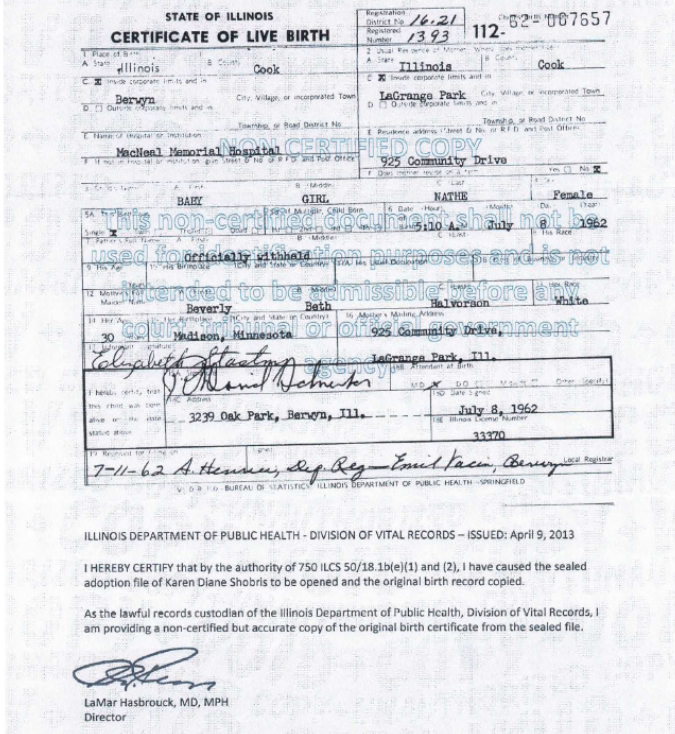 STATE OF ILLINOIS
CERTIFICATE OF LIVE BIRTH
Registration District No. 16.21
Registered Number 1393
112-62-007657
1 Place of Birth
A State Illinois B County Cook
2 Usual Residence of Mother
A State Illinois B County Cook
C ☒ Inside corporate limits and in
Berwyn City, Village, or Incorporated Town
D ☐ Outside corporate limits and in
Township, or Road District No
C ☒ Inside corporate limits and in
LaGrange Park City, Village, or Incorporated Town
D ☐ Outside corporate limits and in
Township, or Road District No
E Name of Hospital or Institution
MacNeal Memorial Hospital
E Residence address (Street & No. or R.F.D. and Post Office)
925 Community Drive
NON CERTIFIED COPY
Yes ☐ No ☒
BABY GIRL NATHE Female
Single X
5:10 A. July 8, 1962
officially withheld
Beverly Beth Halvorson White
30 Madison, Minnesota 925 Community Drive,
LaGrange Park, Ill.
This non-certified document shall not be
used for identification purposes and is not
intended to be admissible before any
court, tribunal or official government
agency.
I hereby certify that
this child was born
alive on the date
stated above
18C Address
3239 Oak Park, Berwyn, Ill.
18D Date Signed
July 8, 1962
18E Illinois License Number
33370
7-11-62
Local Registrar
BUREAU OF STATISTICS ILLINOIS DEPARTMENT OF PUBLIC HEALTH - SPRINGFIELD
ILLINOIS DEPARTMENT OF PUBLIC HEALTH - DIVISION OF VITAL RECORDS – ISSUED: April 9, 2013
I HEREBY CERTIFY that by the authority of 750 ILCS 50/18.1b(e)(1) and (2), I have caused the sealed
adoption file of Karen Diane Shobris to be opened and the original birth record copied.
As the lawful records custodian of the Illinois Department of Public Health, Division of Vital Records, I
am providing a non-certified but accurate copy of the original birth certificate from the sealed file.
LaMar Hasbrouck, MD, MPH
Director